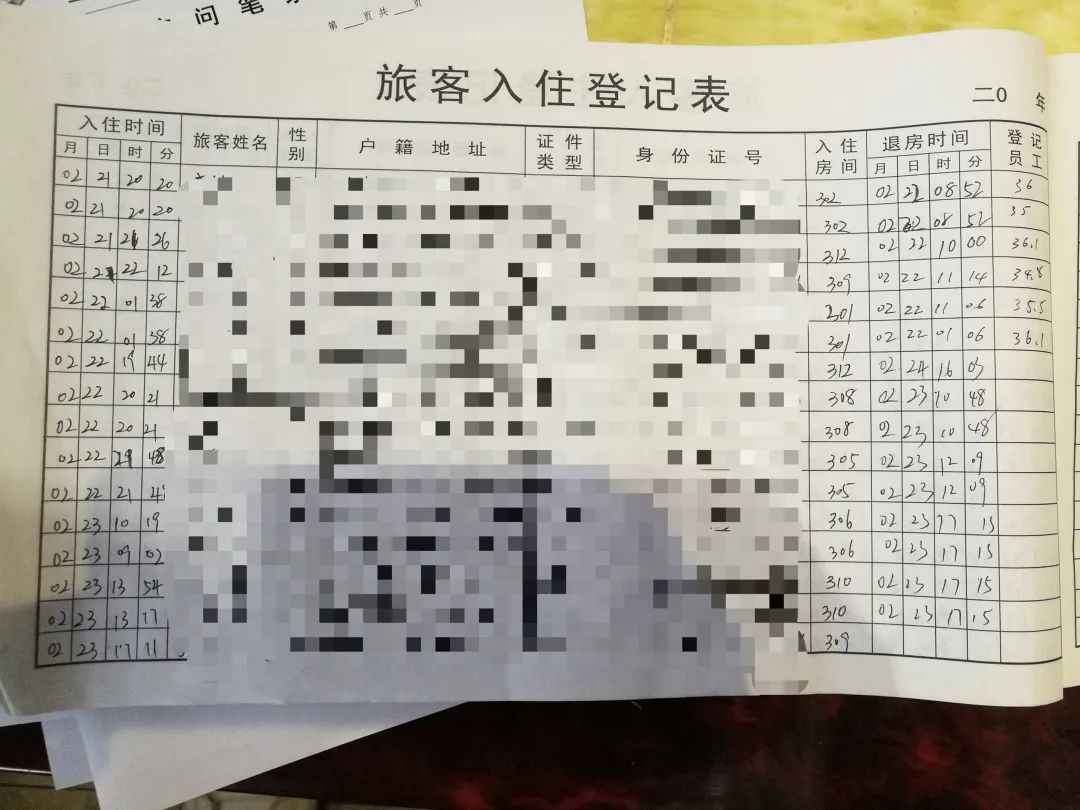 问 笔
第 页 共 页
旅客入住登记表
二0 年
入住时间 旅客姓名 性别 户籍地址 证件类型 身份证号 入住房间 退房时间 登记员工
月 日 时 分 月 日 时 分
02 21 20 20 302 02 22 08 52 36
02 21 20 20 302 02 22 08 52 35
02 21 21 26 312 02 22 10 00 36.1
02 21 22 12 309 02 22 11 14 34.8
02 22 01 38 301 02 22 11 06 35.5
02 22 01 38 301 02 22 01 06 36.1
02 22 19 44 312 02 24 16 03
02 22 20 21 308 02 23 10 48
02 22 20 21 308 02 23 10 48
02 22 48 305 02 23 12 09
02 22 21 305 02 23 12 09
02 23 10 19 306 02 23 17 15
02 23 09 02 306 02 23 17 15
02 23 13 54 310 02 23 17 15
02 23 13 17 310 02 23 17 15
02 23 17 11 309